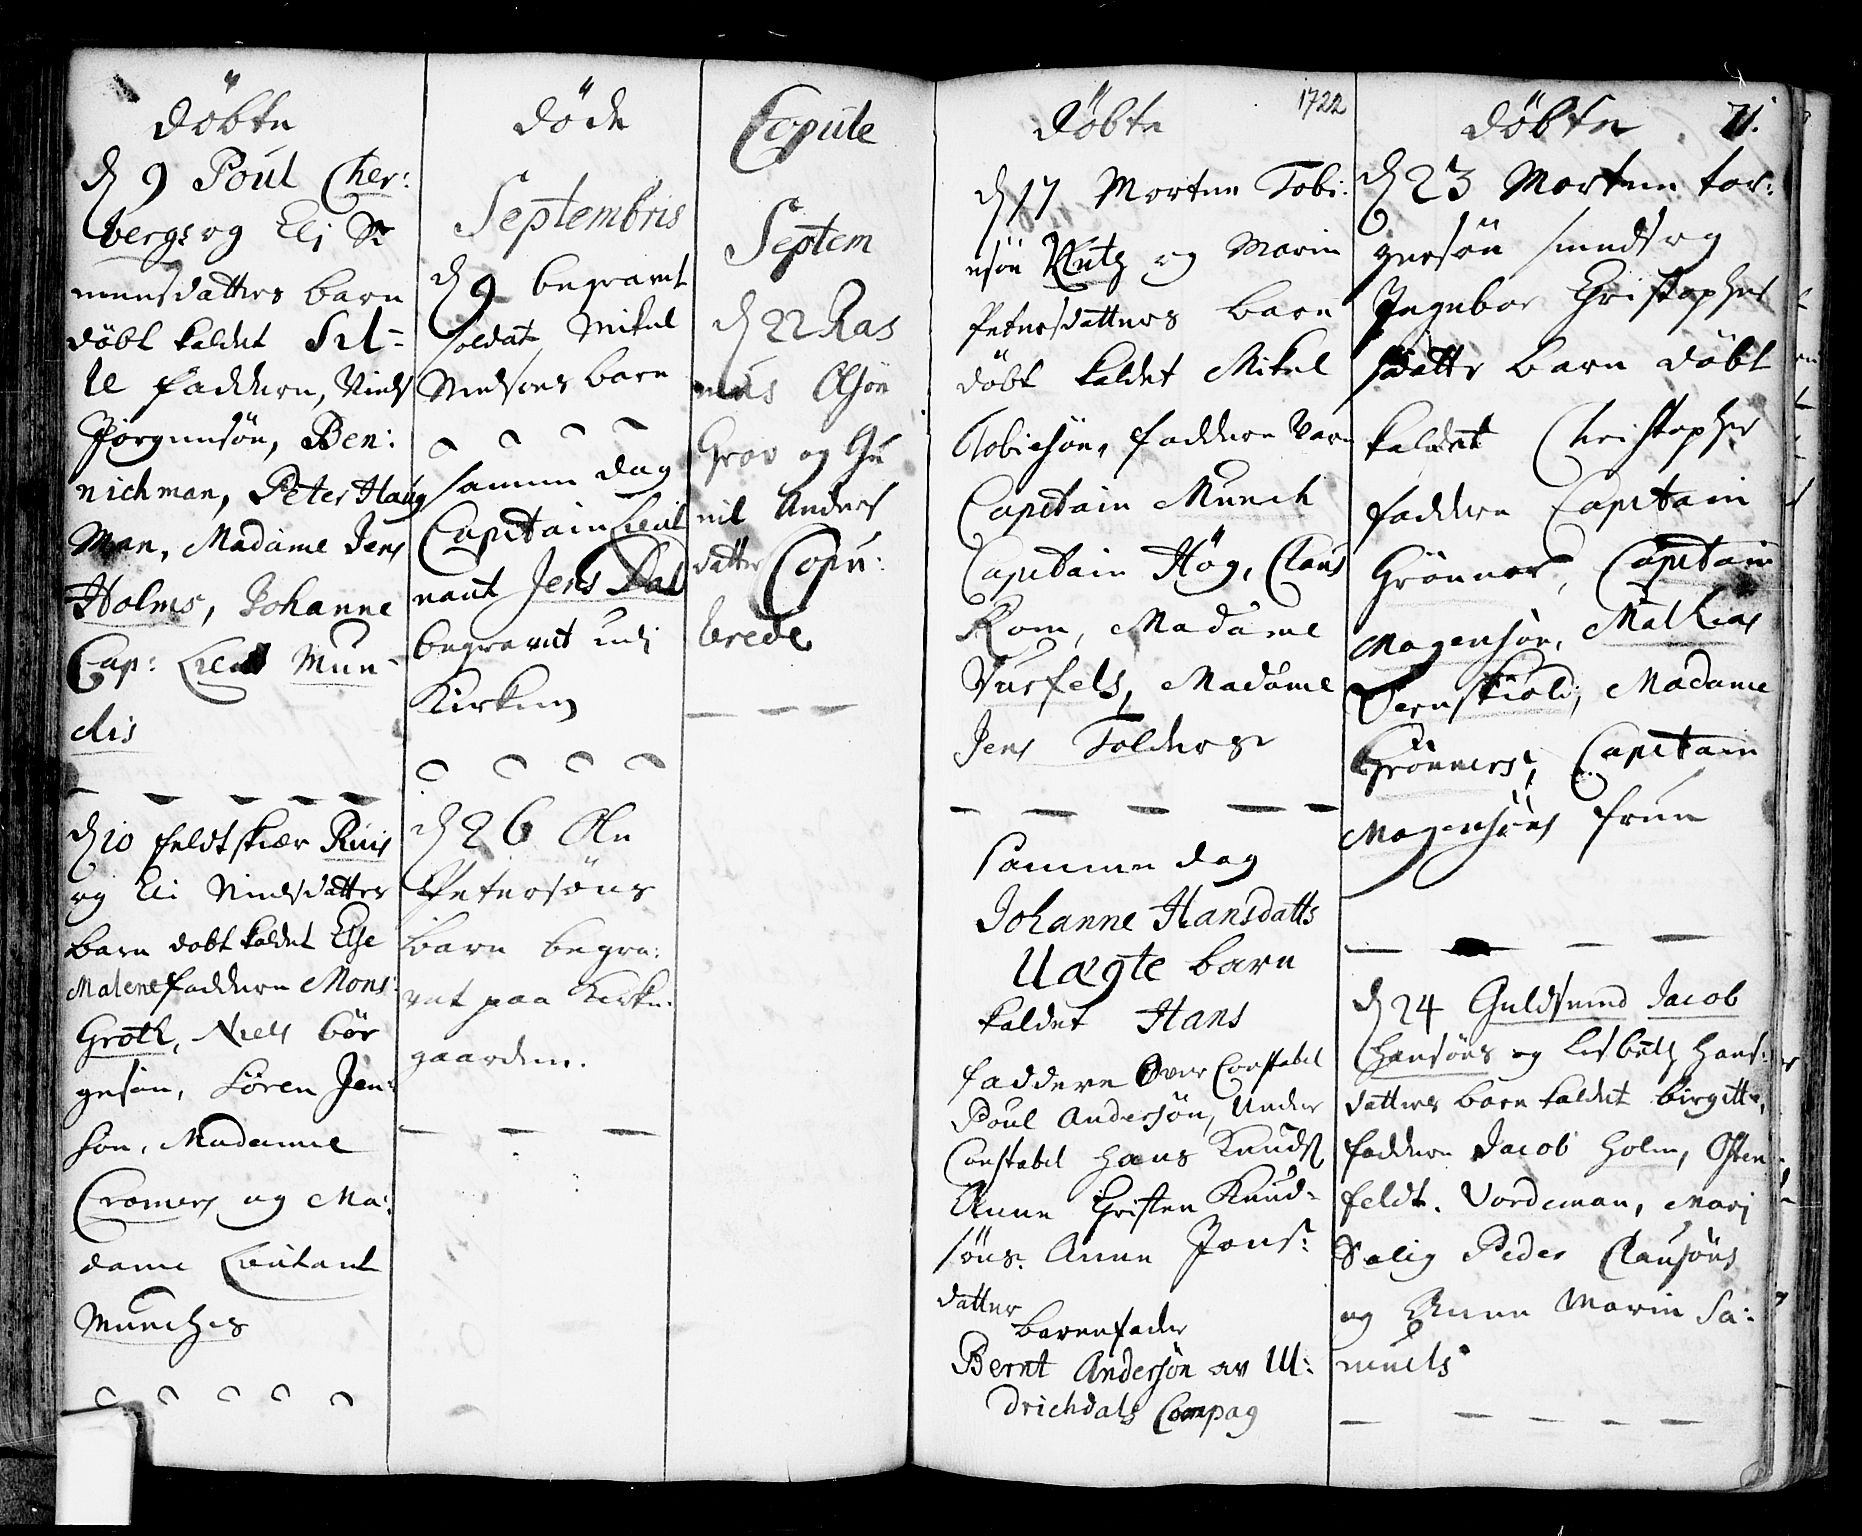 döbte
d 9 Poul Cher:
bergs og Eli Si
mensdatters barn
döbt kaldet Sil-
le faddern, Niels
Jörgensön, Ben:
nichman, Peter Haug
Man, Madame Jens
Holms, Johanne
Cap: Lieut Mun-
chis
d 10 feldtskiær Ruis
og Eli Nielsdatters
barn döbt kaldet Else
Malene faddern Mons:
Groth, Niels bör
gesön, Sören Jen:
sön, Madame
Cramers og Ma:
dame Lieutant
Munches
döde
Septembris
d 9 begravet
soldat Mikel
Nielsens barn
samme dag
Capitain Lieut
nant Jens Dal
begravet udi
Kirken
d 26 Ole
Petersöns
barn begra:
vet paa Kirke-
gaarden.
Copule
Septem
d 22 Ras
mus Olsön
Grov og Gu
nil Anders
datter Copu:
lerede
döbte
1722
d 17 Morten Tobi-
esön Klutz og Maria
Petersdatters barn
döbt kaldet Mikel
Tobiesön, faddern var
Capitain Munch
Capitain Hög, Claus
Rom, Madame
Vursels, Madame
Jens Tolders
samme dag
Johanne Hansdatts
Uægte barn
kaldet Hans
faddere Over Constabel
Poul Andersön, Under
Constabel Hans Knuds
Anne Christen Knud-
söns. Anne Jons:
datter
barnefader
Bernt Andersön av Ul:
drichdals Compag
döbte 71.
d 23 Morten tor:
gersön smeds og
Ingebor Christopher
sdattr barn döbt
kaldet Christopher
faddern Capitain
Grönner, Capitain
Mogensön, Mathias
Ternskiold, Madame
Grönners, Capitain
Mogensöns frue
d 24 Guldsmed Jacob
Hansöns og Lisbeth Hans:
datters barn kaldet birgitte,
faddern Jacob Holm, Osten-
feldt. Vordeman, Mari
Salig Peder Clausöns
og Anne Marie Sa:
muels